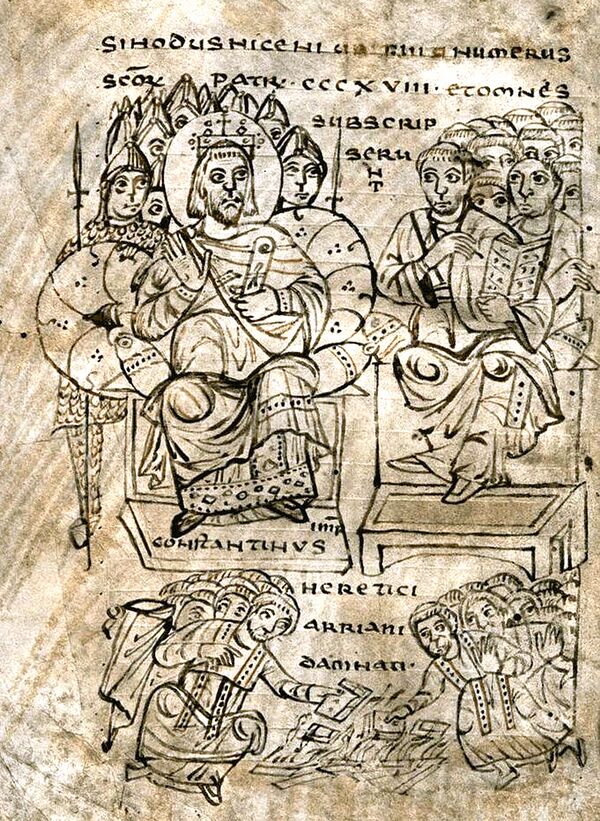 SINODUS NICENI UBI NUMERUS
SCOR PATR · CCCXVIII · ET OMNES
SUBSCRIP
SERU
NT
IMP
CONSTANTINUS
HERETICI
ARRIANI
DAMNATI ·